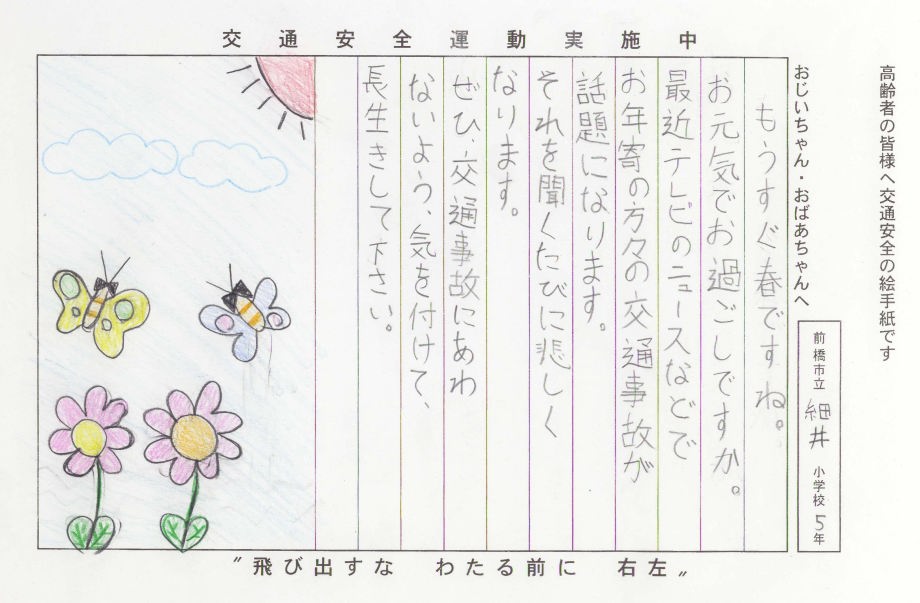 交通安全運動実施中
高齢者の皆様へ交通安全の絵手紙です
おじいちゃん・おばあちゃんへ
前橋市立 細井 小学校 5年
もうすぐ春ですね。
お元気でお過ごしですか。
最近テレビのニュースなどで
お年寄の方々の交通事故が
話題になります。
それを聞くたびに悲しく
なります。
ぜひ、交通事故にあわ
ないよう、気を付けて、
長生きして下さい。
〃飛び出すな わたる前に 右左〃